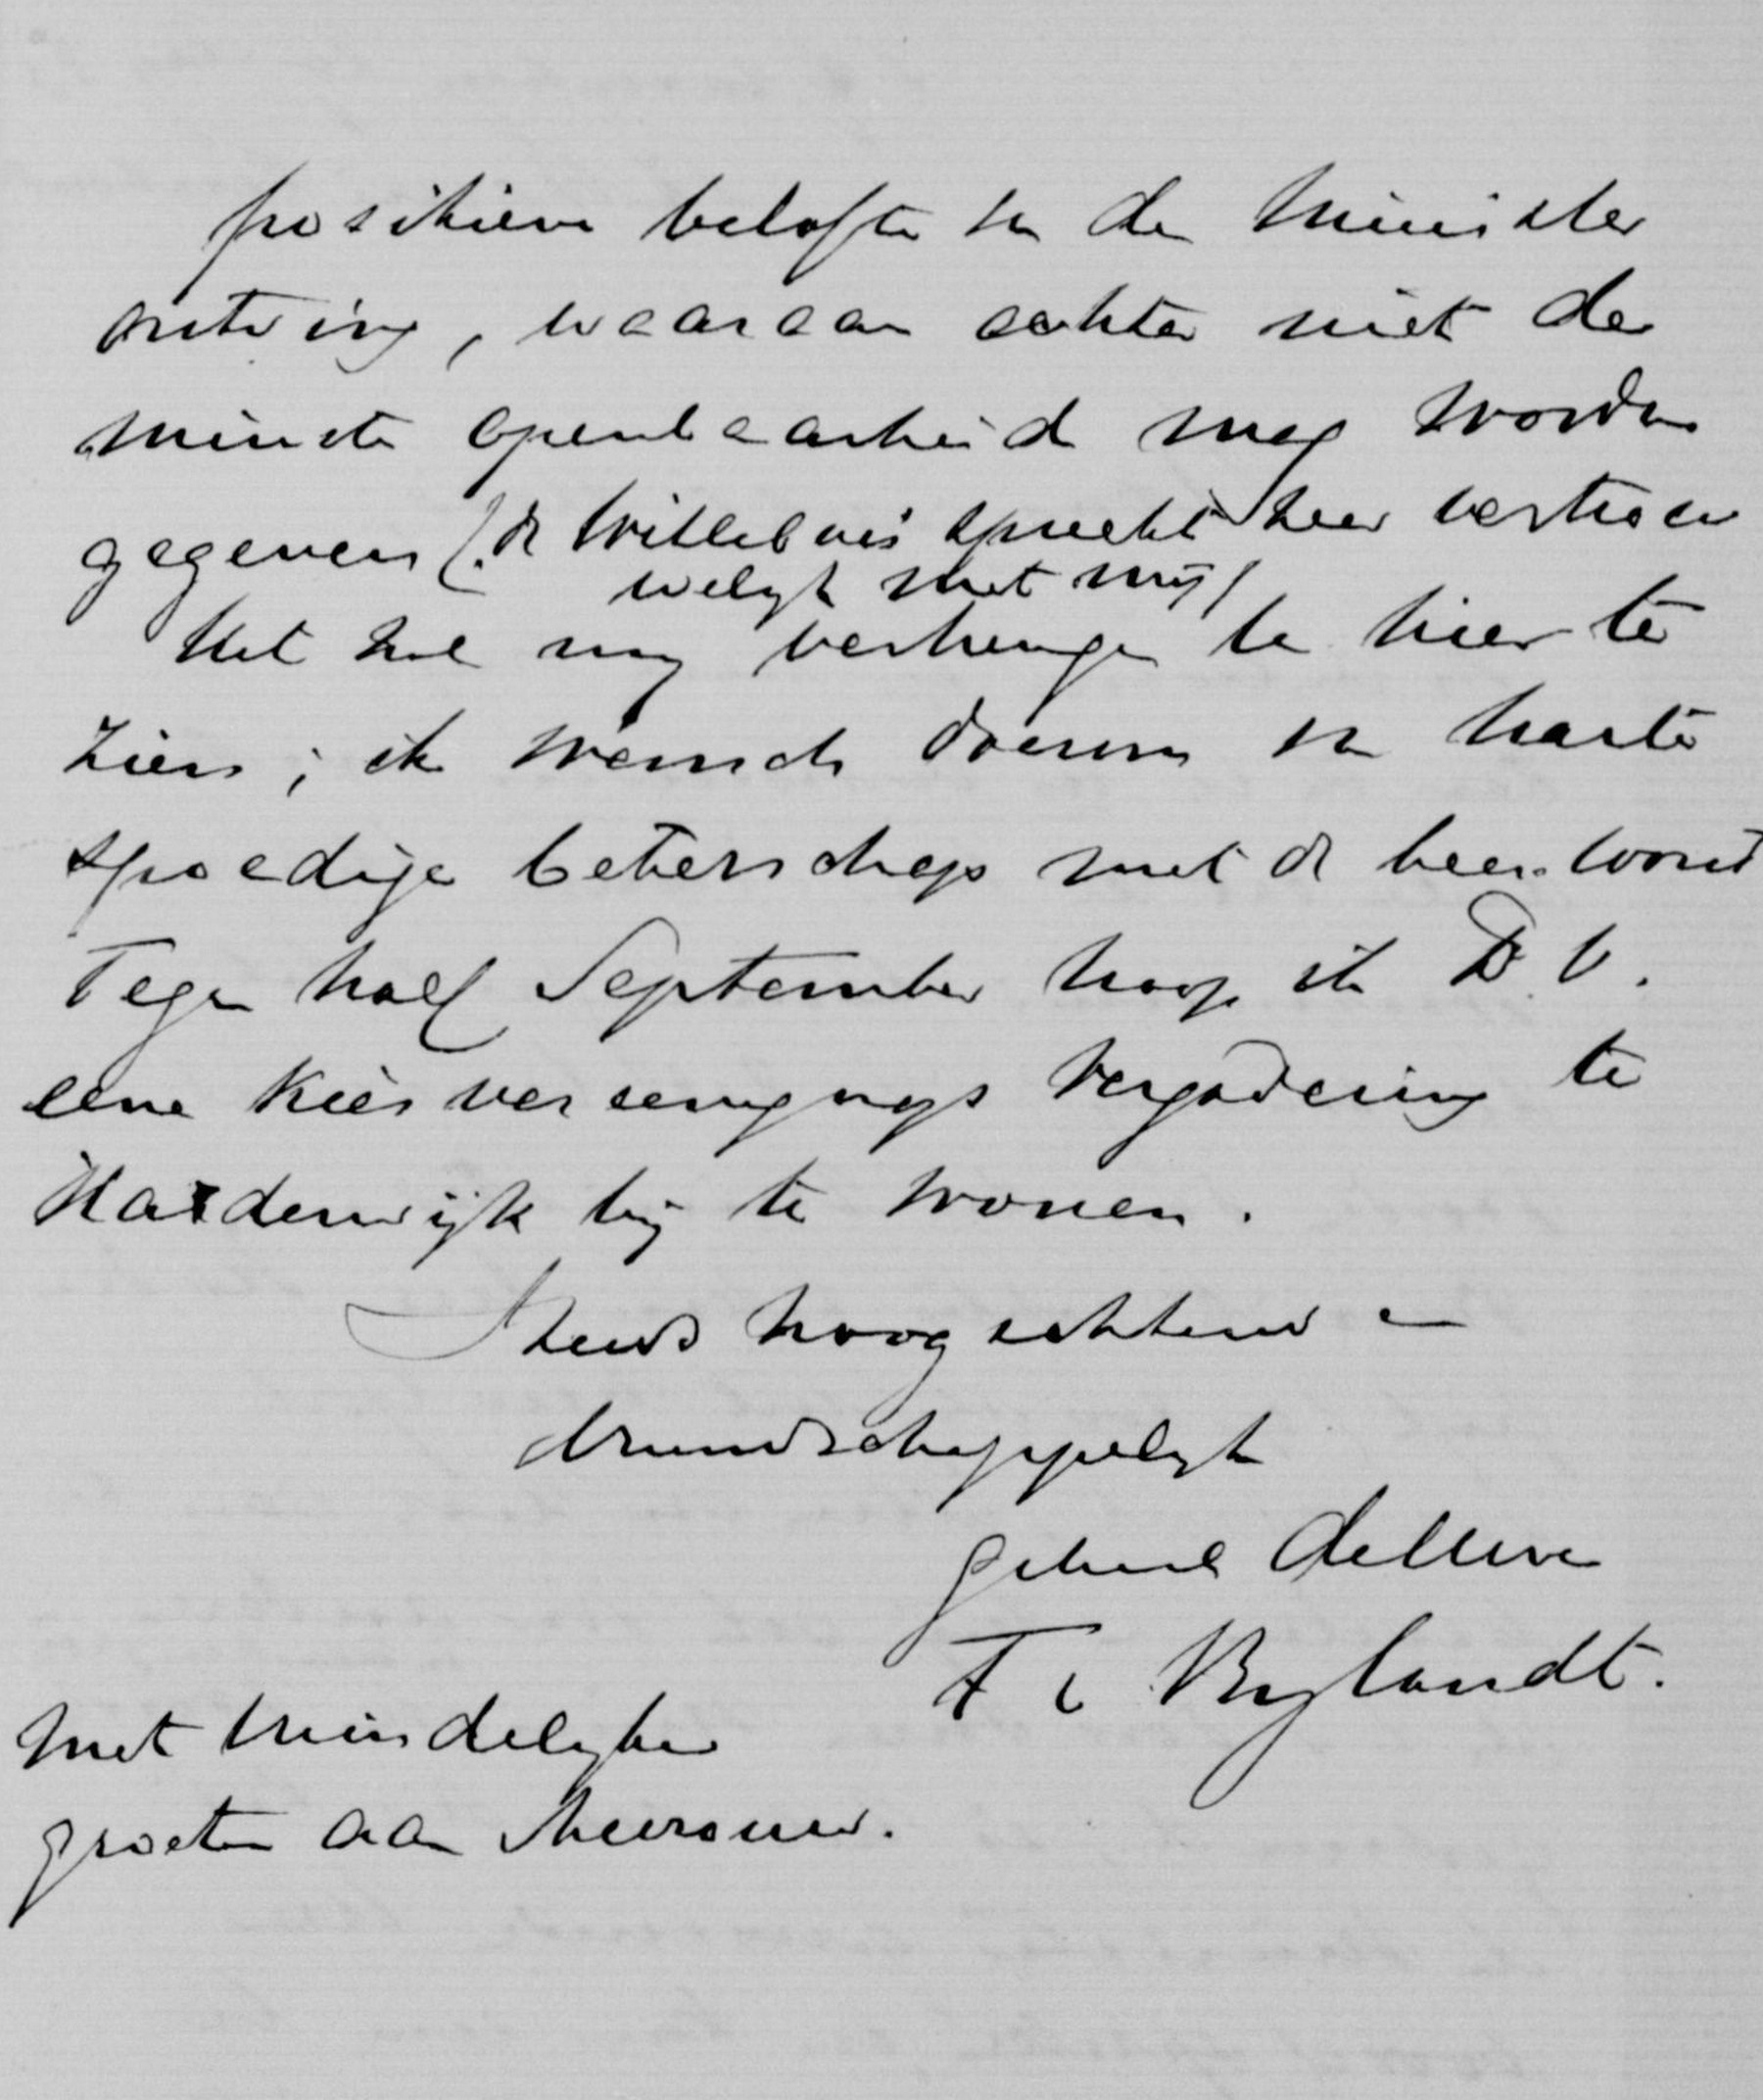 positieve belofte v. den Minister
ontving, waaraan echter niet de
minste openbaarheid mag worden
gegeven (de Wittebois spreekt zeer vertrou
welijk met mij)
Het zal mij verheugen U hier te
zien; ik wensch daarom v. harte
spoedige beterschap met de beenwond
Tegen half September hoop ik D.V.
eene Kiesvereenigings Vergadering te
Harderwijk bij te wonen.
Steeds hoogachtend en
vriendschappelijk
geheel de Uwe
F v Bylandt.
Met vriendelijke
groeten aan Mevrouw.